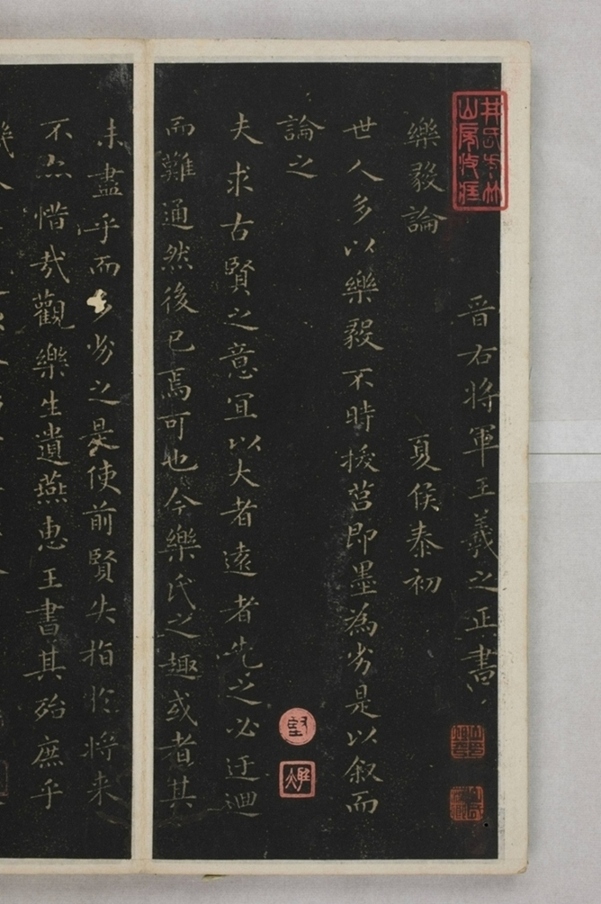 晉右將軍王羲之正書
樂毅論
夏侯泰初
世人多以樂毅不時拔莒即墨為劣是以叙而
論之
夫求古賢之意宜以大者遠者先之必迂迴
而難通然後已焉可也今樂氏之趣或者其
未盡乎而多劣之是使前賢失指於將來
不亦惜哉觀樂生遺燕惠王書其殆庶乎